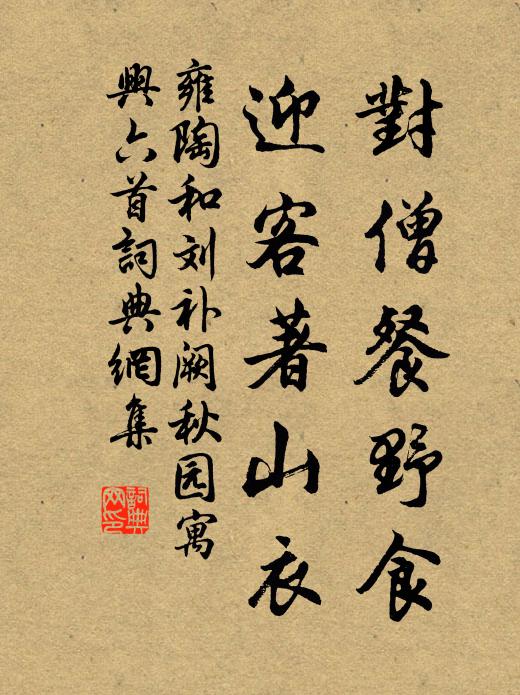 對僧餐野食
迎客著山衣
雍陶和刘补阙秋园寓
興六首詞典網集
詞典网印